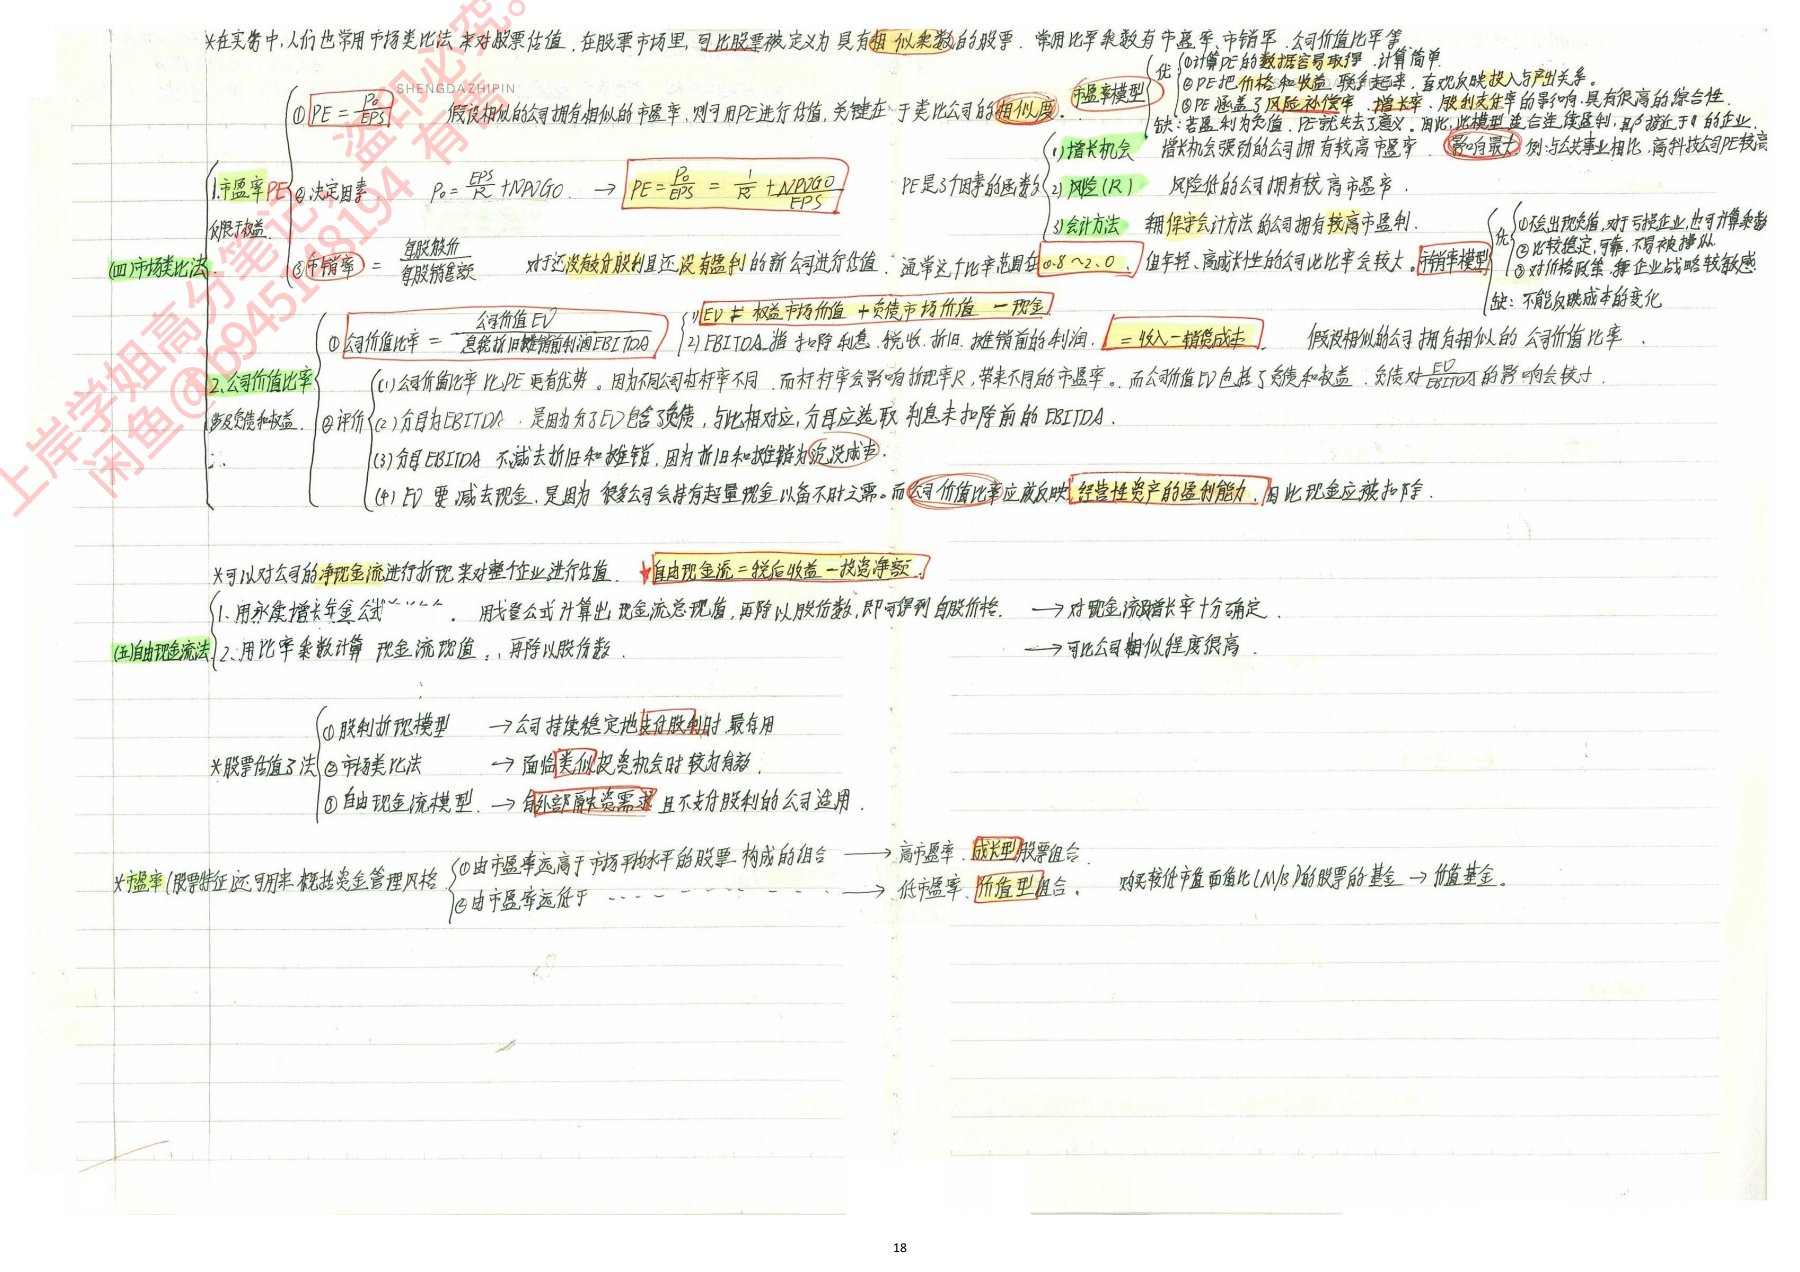 *在实务中,人们也常用市场类比法来对股票估值.在股票市场里,可比股票被定义为具有相似乘数的的股票.常用比率乘数有市盈率、市销率、公司价值比率等
SHENGDAZHIPIN
(四)市场类比法
1.市盈率PE
仅限于权益.
① PE = P₀/EPS 假设相似的公司拥有相似的市盈率,则可用PE进行估值,关键在于类比公司的相似度.
市盈率模型
优 ①计算PE的数据容易取得.计算简单.
②PE把价格和收益联系起来,直观反映投入与产出关系。
③PE涵盖了风险补偿率、增长率、股利支付率的影响,具有很高的综合性.
缺:若盈利为负值,PE就失去了意义。因此,此模型适合连续盈利,且β接近于1的企业.
②决定因素. P₀ = EPS/R + NPVGO. → PE = P₀/EPS = 1/R + NPVGO/EPS
PE是3个因素的函数
1)增长机会 增长机会强劲的公司拥有较高市盈率. 影响最大 例:与公共事业相比,高科技公司PE较高
2)风险(R) 风险低的公司拥有较高市盈率.
3)会计方法 采用保守会计方法的公司拥有较高市盈利.
③市销率 = 每股股价/每股销售额 对于还没有分股利且还没有盈利的新公司进行估值.通常这个比率范围在0.8~2.0,但年轻、高成长性的公司此比率会较大。
市销率模型
优 ①不会出现负值,对于亏损企业,也可计算乘数
②比较稳定,可靠,不易被操纵
③对价格政策、企业战略较敏感.
缺:不能反映成本的变化
2.公司价值比率
涉及负债和权益.
① 公司价值比率 = 公司价值EV/息税折旧摊销前利润EBITDA
1) EV = 权益市场价值 + 负债市场价值 - 现金
2) EBITDA指扣除利息.税收.折旧.摊销前的利润. = 收入-销售成本. 假设相似的公司拥有相似的公司价值比率.
②评价
(1)公司价值比率比PE更有优势。因为不同公司杠杆率不同.而杠杆率会影响折现率R,带来不同的市盈率。而公司价值EV包括了负债和权益.负债对EV/EBITDA的影响会较小.
(2)分母为EBITDA.是因为分子EV包含了负债,与此相对应,分母应选取利息未扣除前的EBITDA.
(3)分母EBITDA不减去折旧和摊销,因为折旧和摊销为沉没成本.
(4) EV要减去现金.是因为很多公司会持有超量现金以备不时之需。而公司价值比率应该反映经营性资产的盈利能力,因此现金应被扣除.
*可以对公司的净现金流进行折现来对整个企业进行估值. 自由现金流=税后收益-投资净额.
(五)自由现金流法
1.用永续增长年金公式 . 用戈登公式计算出现金流总现值,再除以股份数,即可得到每股价格. → 对现金流和增长率十分确定.
2.用比率乘数计算现金流现值.,再除以股份数. → 可比公司相似程度很高.
*股票估值方法
①股利折现模型 → 公司持续稳定地支付股利时最有用
②市场类比法 → 面临类似投资机会时较为有效.
③自由现金流模型. → 有外部融资需求且不支付股利的公司适用.
*市盈率(股票特征)还可用来概括资金管理风格.
①由市盈率远高于市场平均水平的股票构成的组合 → 高市盈率、成长型股票组合.
②由市盈率远低于 → 低市盈率、价值型组合。 购买较低市值面值比(M/B)的股票的基金 → 价值基金。
上岸学姐高分笔记,盗印必究。
闲鱼@b945148194 有售
18